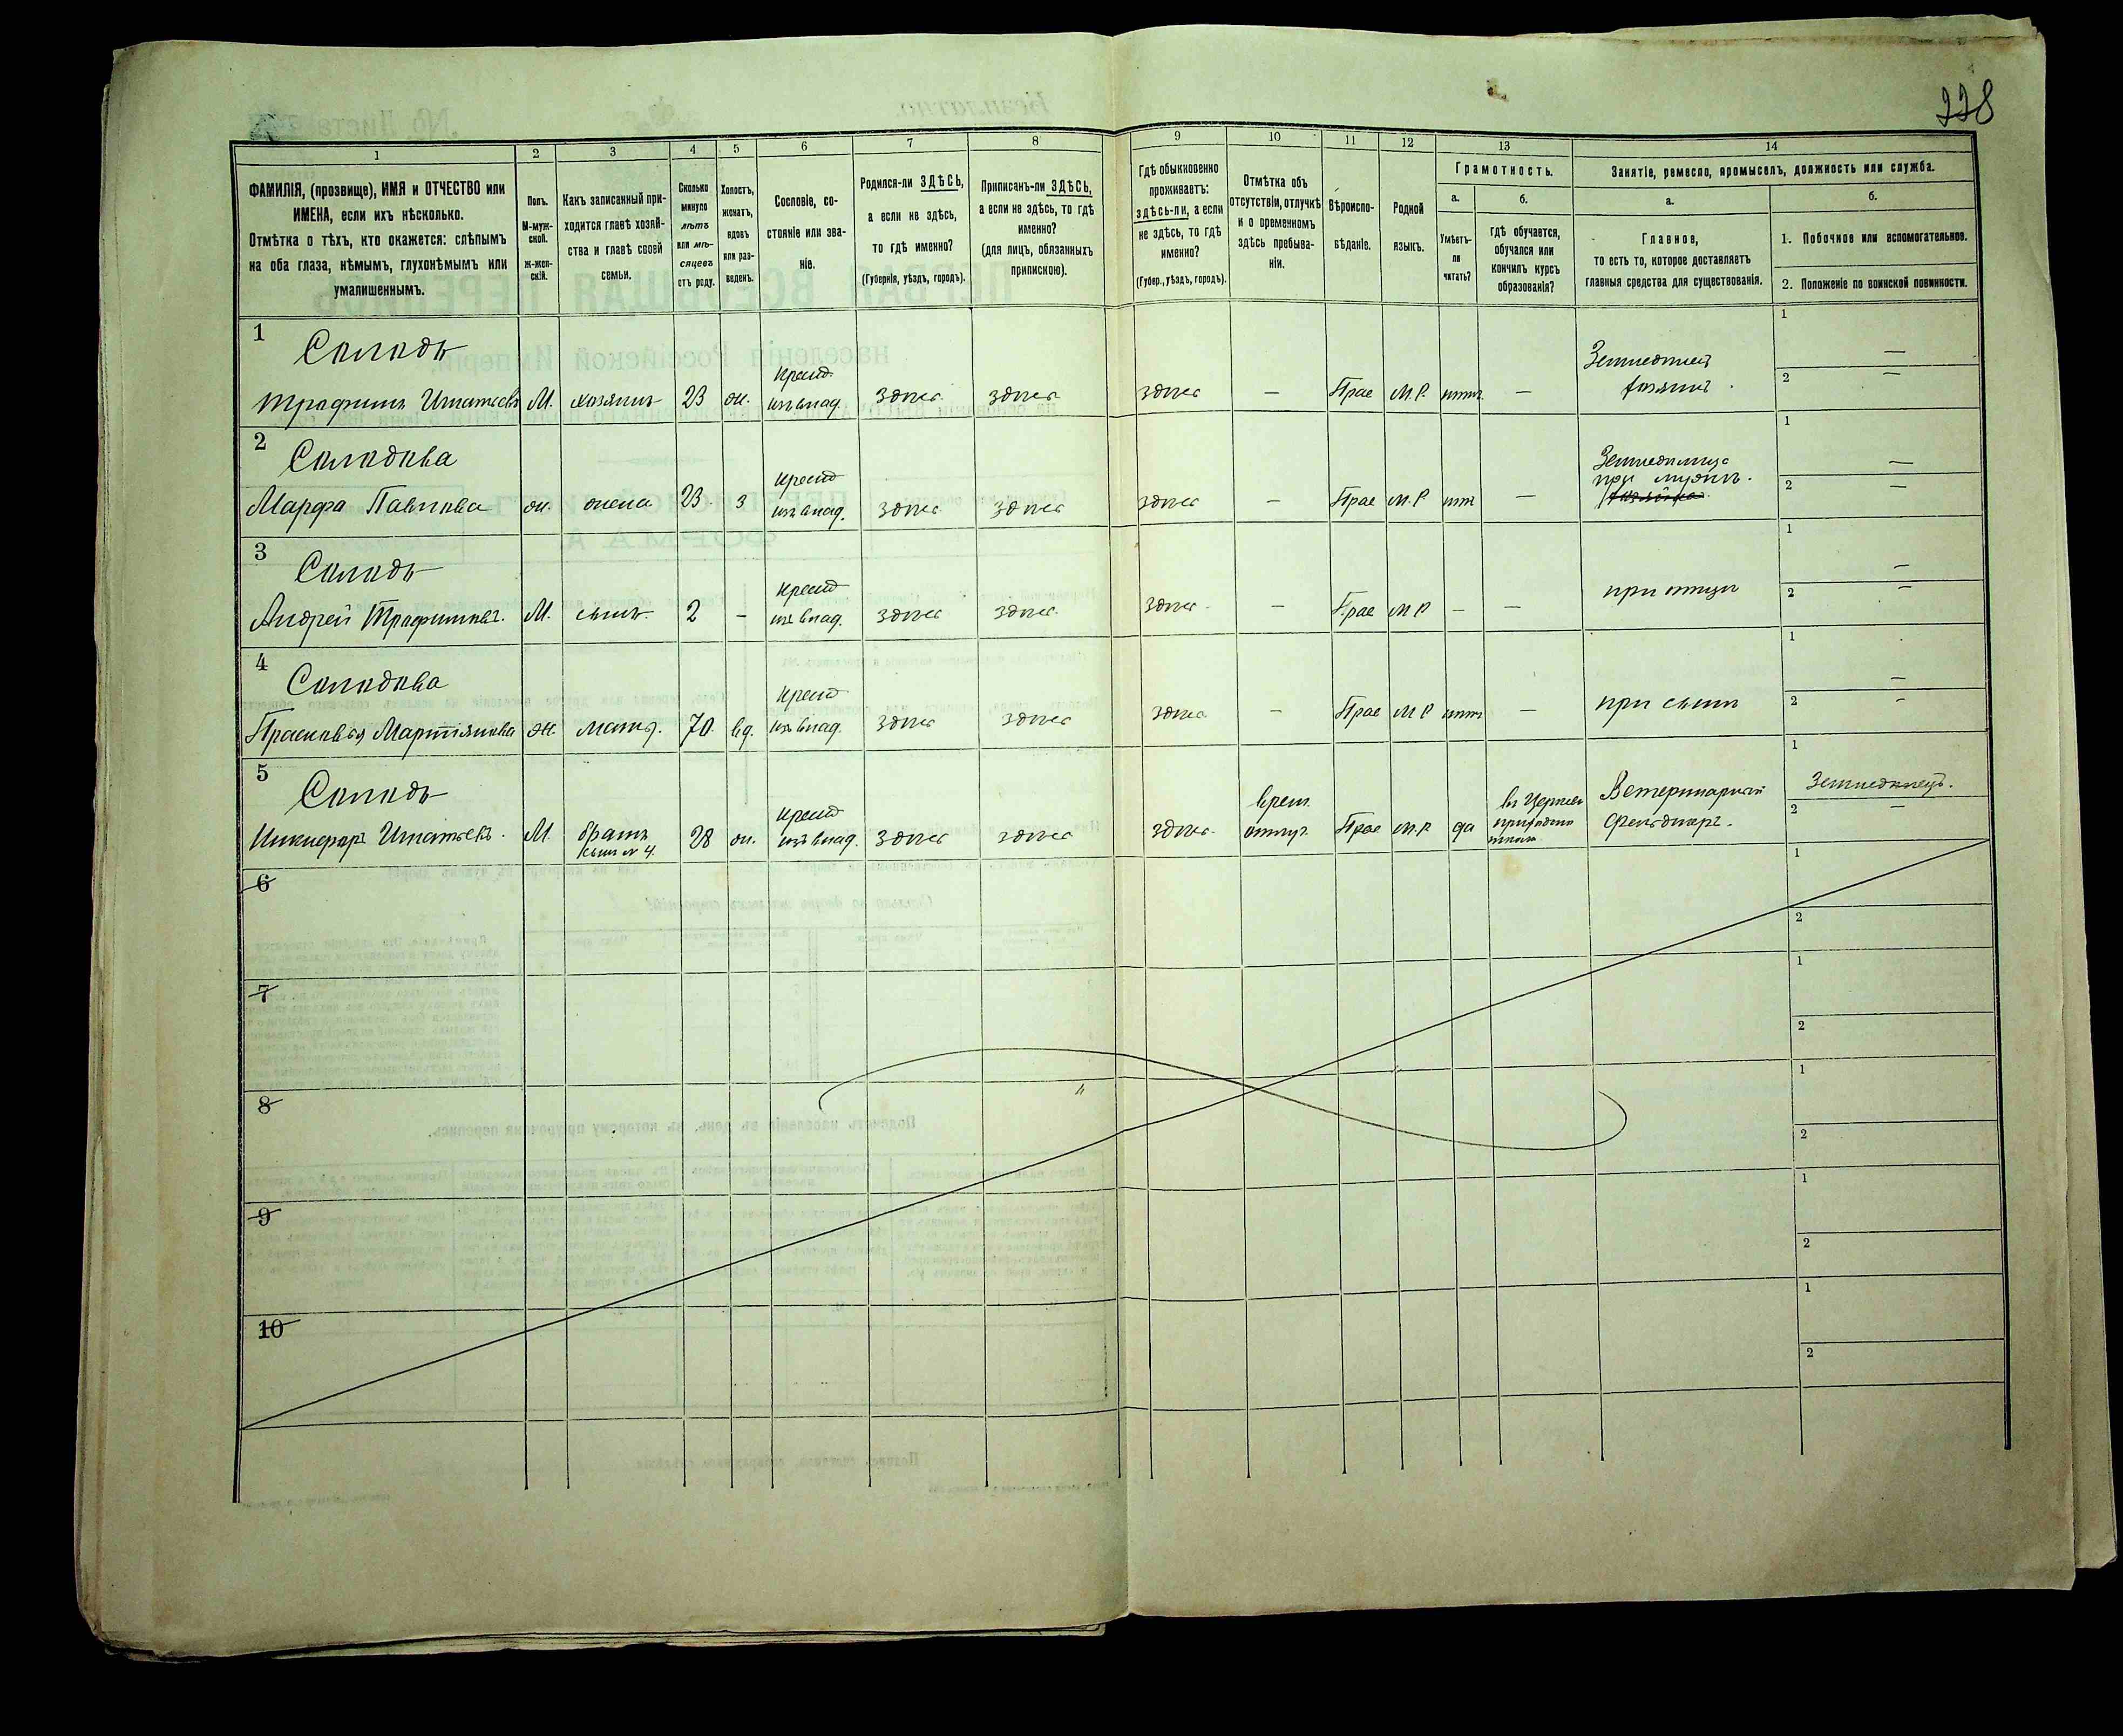 228
1 2 3 4 5 6 7 8 9 10 11 12 13 14
ФАМИЛІЯ, (прозвище), ИМЯ и ОТЧЕСТВО или
ИМЕНА, если ихъ нѣсколько.
Отмѣтка о тѣхъ, кто окажется: слѣпымъ
на оба глаза, нѣмымъ, глухонѣмымъ или
умалишеннымъ.
Полъ.
М-муж-
ской.
Ж-жен-
скій.
Какъ записанный при-
ходится главѣ хозяй-
ства и главѣ своей
семьи.
Сколько
минуло
лѣтъ
или мѣ-
сяцевъ
отъ роду.
Холостъ,
женатъ,
вдовъ
или раз-
веденъ.
Сословіе, со-
стояніе или зва-
ніе.
Родился-ли ЗДѢСЬ,
а если не здѣсь,
то гдѣ именно?
(Губернія, уѣздъ, городъ).
Приписанъ-ли ЗДѢСЬ,
а если не здѣсь, то гдѣ
именно?
(для лицъ, обязанныхъ
припискою).
Гдѣ обыкновенно
проживаетъ:
здѣсь-ли, а если
не здѣсь, то гдѣ
именно?
(Губер., уѣздъ, городъ).
Отмѣтка объ
отсутствіи, отлучкѣ
и о временномъ
здѣсь пребыва-
ніи.
Вѣроиспо-
вѣданіе.
Родной
языкъ.
Грамотность.
а.
Умѣетъ-
ли
читать?
б.
гдѣ обучается,
обучался или
кончилъ курсъ
образованія?
Занятіе, ремесло, промыселъ, должность или служба.
а.
Главное,
то есть то, которое доставляетъ
главныя средства для существованія.
б.
1. Побочное или вспомогательное.
2. Положеніе по воинской повинности.
1
Солодъ
Трофимъ Игнатьевъ М. хозяинъ 23 ж. крест. изъ влад. здѣсь здѣсь здѣсь — Прав М.Р. нѣтъ —
Земледѣлец
хозяинъ.
1 —
2 —
2
Солодова
Марфа Павлова ж. жена 23. з крест изъ влад. здѣсь здѣсь здѣсь — Прав М.Р. нѣт —
при мужѣ.
хозяйка
1 —
2 —
3
Солодъ
Андрей Трофимовъ. М. сынъ. 2 — крест изъ влад. здѣсь здѣсь здѣсь — Прав М Р — —
при отцѣ
1 —
2 —
4
Солодова
Прасковья Мартіянова ж. мать. 70. вд. крест изъ влад. здѣсь здѣсь здѣсь — Прав М Р нѣтъ —
при сынѣ
1 —
2 —
5
Солодъ
Никифоръ Игнатьевъ. М. братъ сынъ № 4. 28 ж. крест изъ влад. здѣсь здѣсь здѣсь. врем. отлуч. Прав М.Р да
Ветеринарный
Фельдшеръ.
1 Земледѣлецъ.
2 —
6
1
2
7
1
2
8
1
2
9
1
2
10
1
2